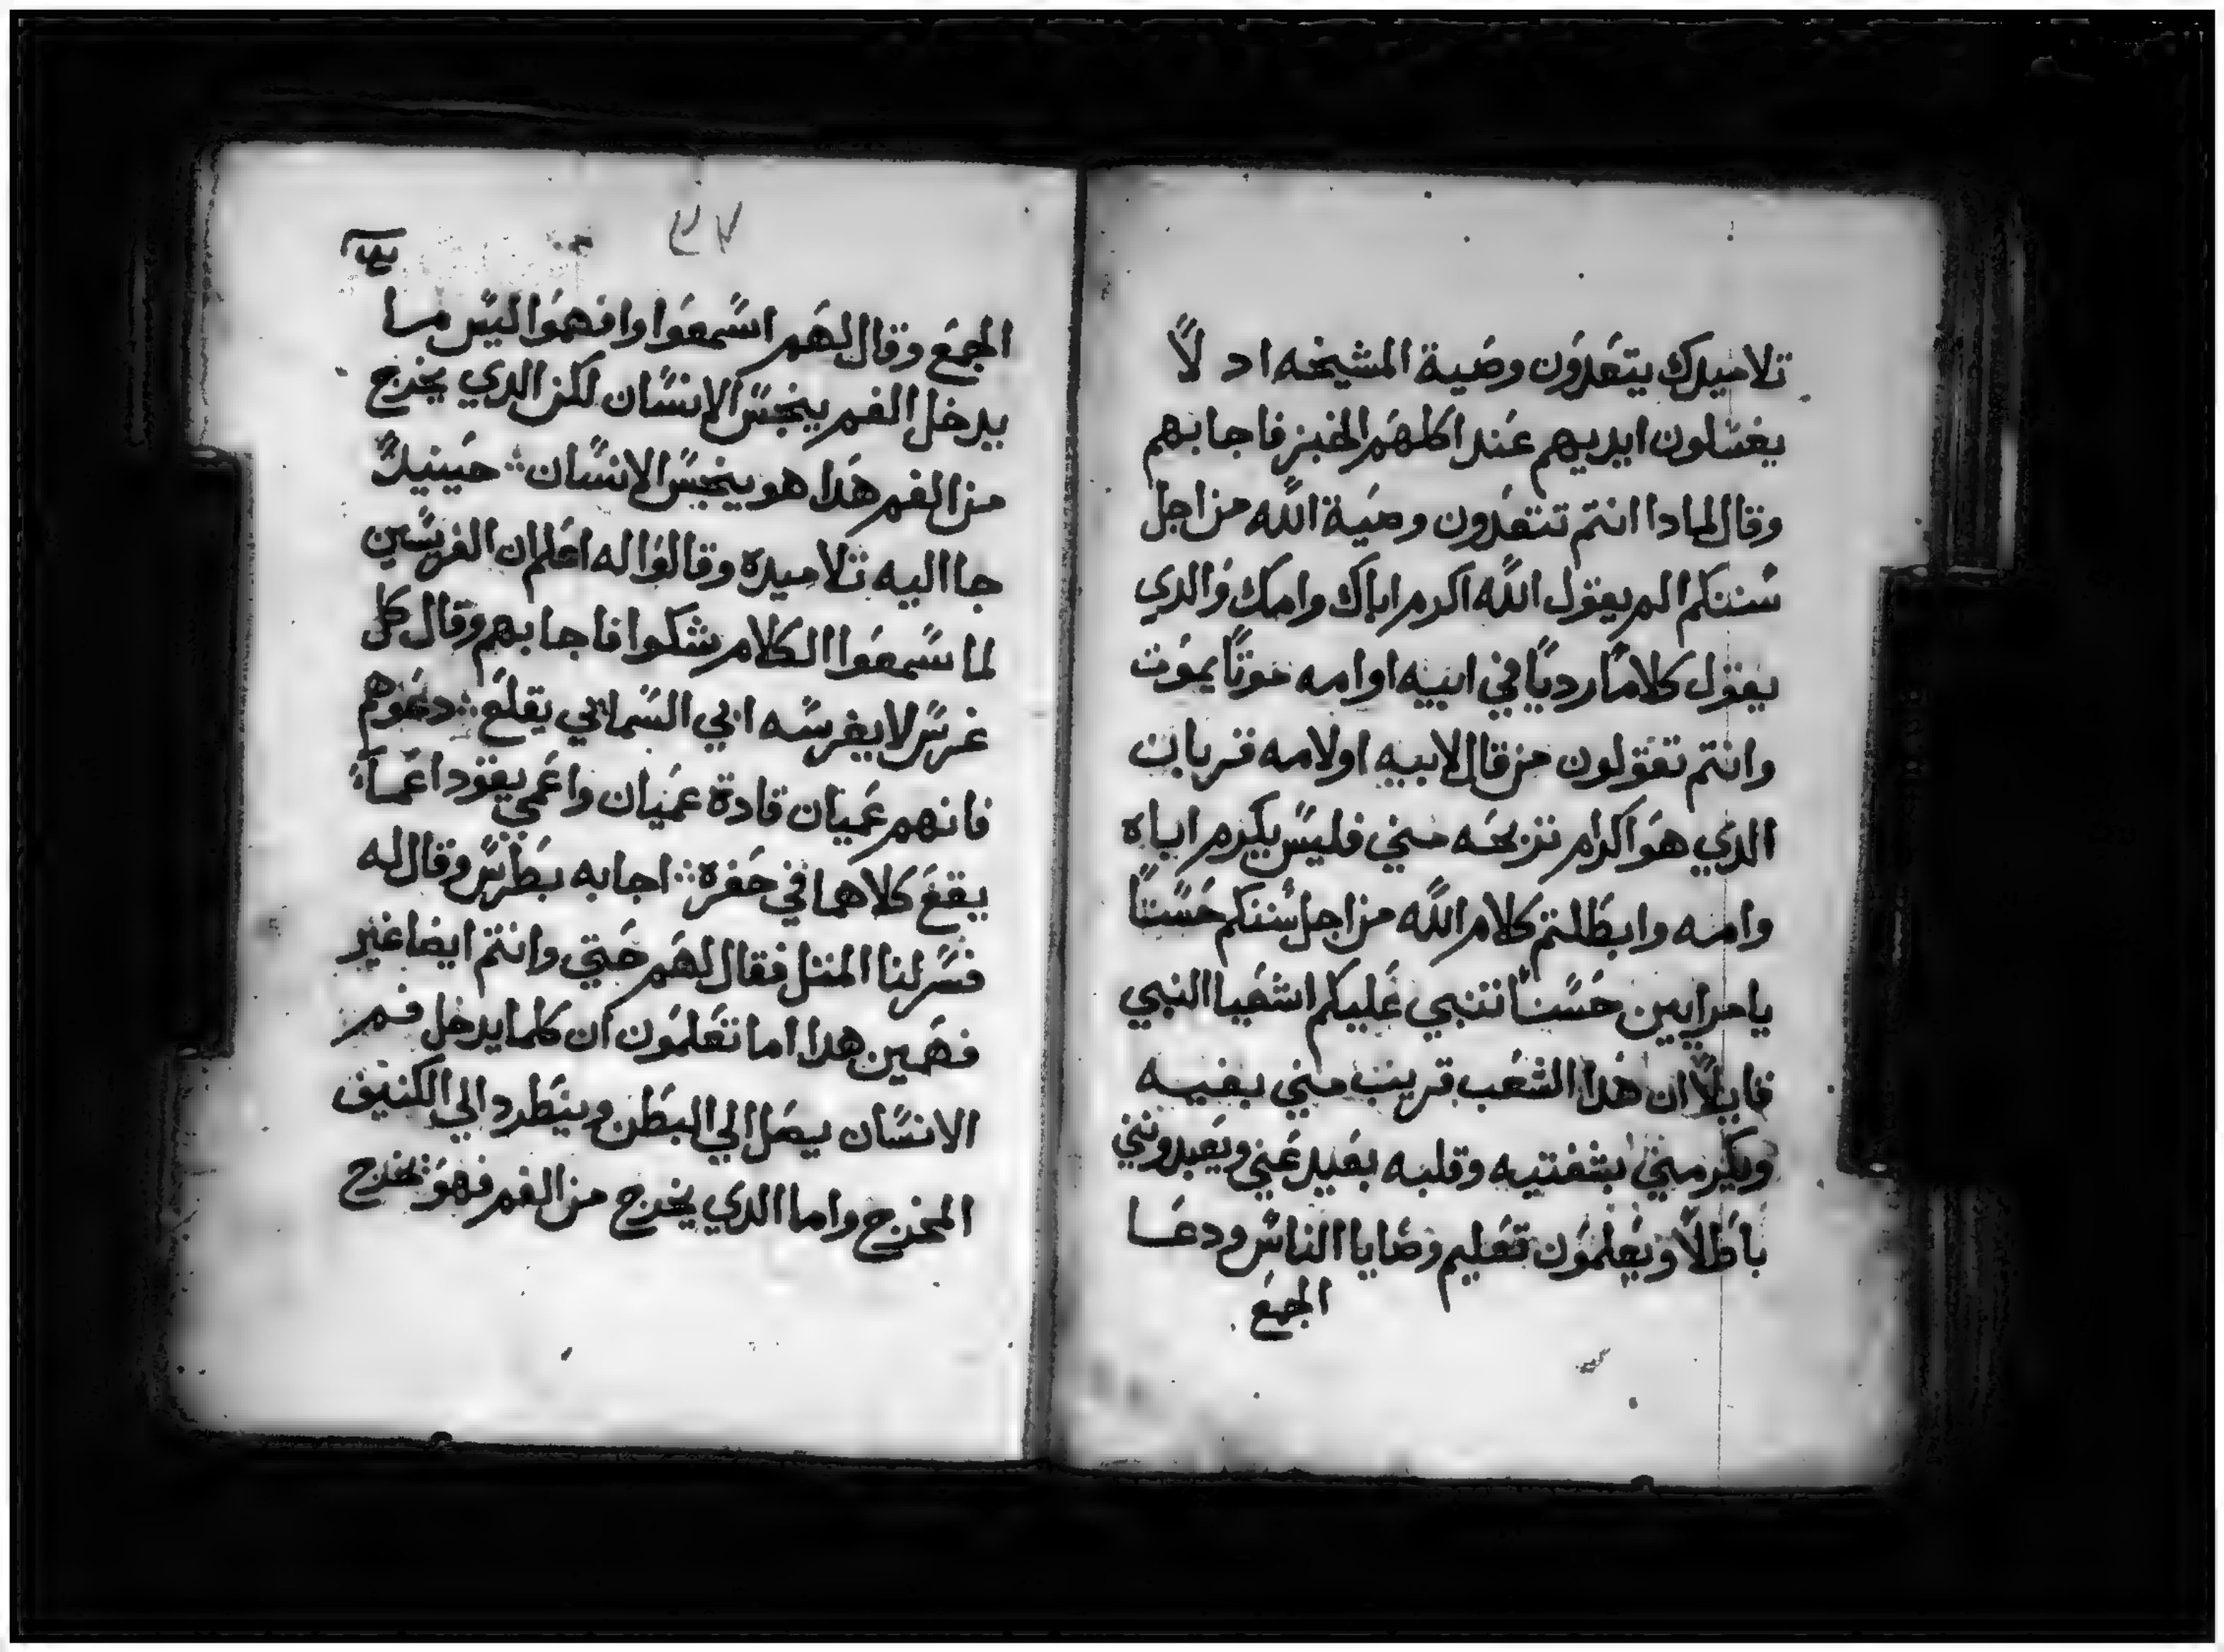 تلاميدك يتعدون وصية المشيخه اد لا
يغسلون ايديهم عند اكلهم الخبز فاجابهم
وقال لمادا انتم تتعدون وصية الله من اجل
سننكم الم يقول الله اكرم اباك وامك والدي
يقول كلاما رديا في ابيه او امه موتا يموت
وانتم تقولون من قال لابيه او لامه قربان
الدي هو اكرام تربحه مني فليس يكرم اباه
وامه وابطلتم كلام الله من اجل سننكم حسنا
يا مرايين حسنا تنبي عليكم اشعيا النبي
قايلا ان هدا الشعب قريب مني بفيه
ويكرمني بشفتيه وقلبه بعيد عني ويعبدونني
باطلا ويعلمون تعليم وصايا الناس ودعا
الجمع
٣٧
الجمع وقال لهم اسمعوا وافهموا ليس ما
يدخل الفم ينجس الانسان لكن الدي يخرج
من الفم هدا هو ينجس الانسان حينيد
جا اليه تلاميده وقالوا له اعلم ان الفريسين
لما سمعوا الكلام شكوا فاجابهم وقال كل
غرس لا يغرسه ابي السمايي يقلع دعوهم
فانهم عميان قادة عميان واعمي يقود اعما
يقع كلاهما في حفرة اجابه بطرس وقال له
فسر لنا المثل فقال لهم حتي وانتم ايضا غير
فهمين هدا اما تعلمون ان كلما يدخل فم
الانسان يصل الي البطن وينطرد الي الكنيف
المخرج واما الدي يخرج من الفم فهو يخرج